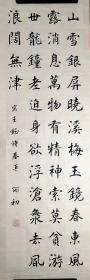 山雪銀屏曉溪梅玉鏡春東風
露消息萬物有精神索莫貧游
世龍鐘老迫身欲浮滄海去風
浪闊無津
宋王銍詩春近